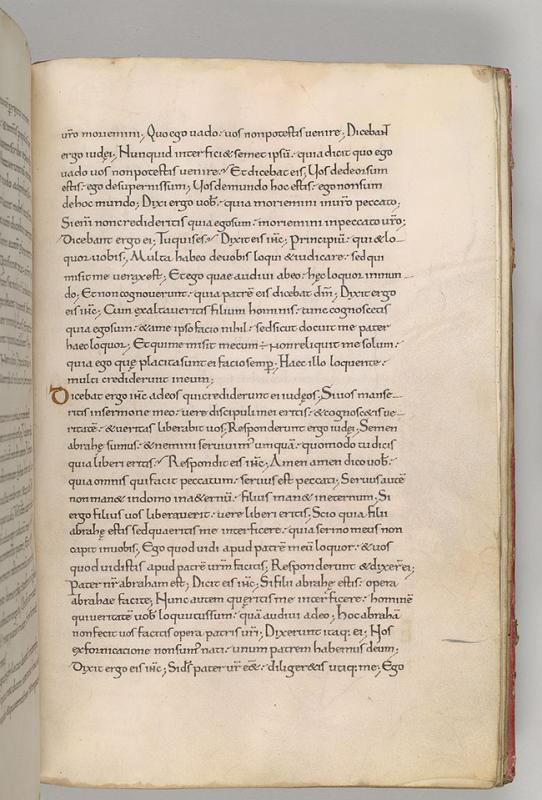 ur̄o moriemini; Quo ego uado · uos non potestis uenire; Dicebant
ergo iudęi; Nunquid interfici& semet ipsū · quia dicit quo ego
uado uos non potestis uenire; Et dicebat eis; Uos de deorsum
estis · ego de supernis sum; Uos de mundo hoc estis · ego non sum
de hoc mundo; Dixi ergo uob̄ · quia moriemini in ur̄o peccato;
Si enī non credideritis quia ego sum · moriemini in peccato ur̄o;
Dicebant ergo ei; Tu quis es; Dixit eis ih̄c; Principiū · qui & lo-
quor uobis; Multa habeo de uobis loqui & iudicare · sed qui
misit me uerax est; Et ego quae audiui ab eo · hęc loquor in mun-
do; Et non cognouerunt · quia patrē eis dicebat dm̄; Dixit ergo
eis ih̄c; Cum exaltaueritis filium hominis · tunc cognoscetis
quia ego sum · & a me ipso facio nihil · sed sicut docuit me pater
haec loquor; Et qui me misit mecum ÷ & non reliquit me solum ·
quia ego quę placita sunt ei facio semp; Haec illo loquente ·
multi crediderunt in eum;
Dicebat ergo ih̄c ad eos qui crediderunt ei iudęos; Si uos manse-
ritis in sermone meo · uere discipuli mei eritis · & cognoscetis ue-
ritatē · & ueritas liberabit uos; Responderunt ergo iudęi; Semen
abrahę sumus · & nemini seruiuim' umquā · quomodo tu dicis
quia liberi eritis; Respondit eis ih̄c; Amen amen dico uob̄ ·
quia omnis qui facit peccatum · seruus est peccati; Seruus autē
non man& in domo in aeternū · filius man& in eternum; Si
ergo filius uos liberauerit · uere liberi eritis; Scio quia filii
abrahę estis sed quaeritis me interficere · quia sermo meus non
capit in uobis; Ego quod uidi apud patrē meū loquor · & uos
quod uidistis apud patrē ur̄m facitis; Responderunt & dixer̄ ei;
Pater nr̄ abraham est; Dicit eis ih̄c; Si filii abrahę estis · opera
abrahae facite; Nunc autem quęritis me interficere · hominē
qui ueritatē uob̄ locutus sum · quā audiui a deo; Hoc abrahā
non fecit uos facitis opera patris ur̄i; Dixerunt itaq; ei; Nos
ex fornicatione non sum' nati · unum patrem habemus deum;
Dixit ergo eis ih̄c; Si ds̄ pater ur̄ ess& · diliger&is utiq; me; Ego